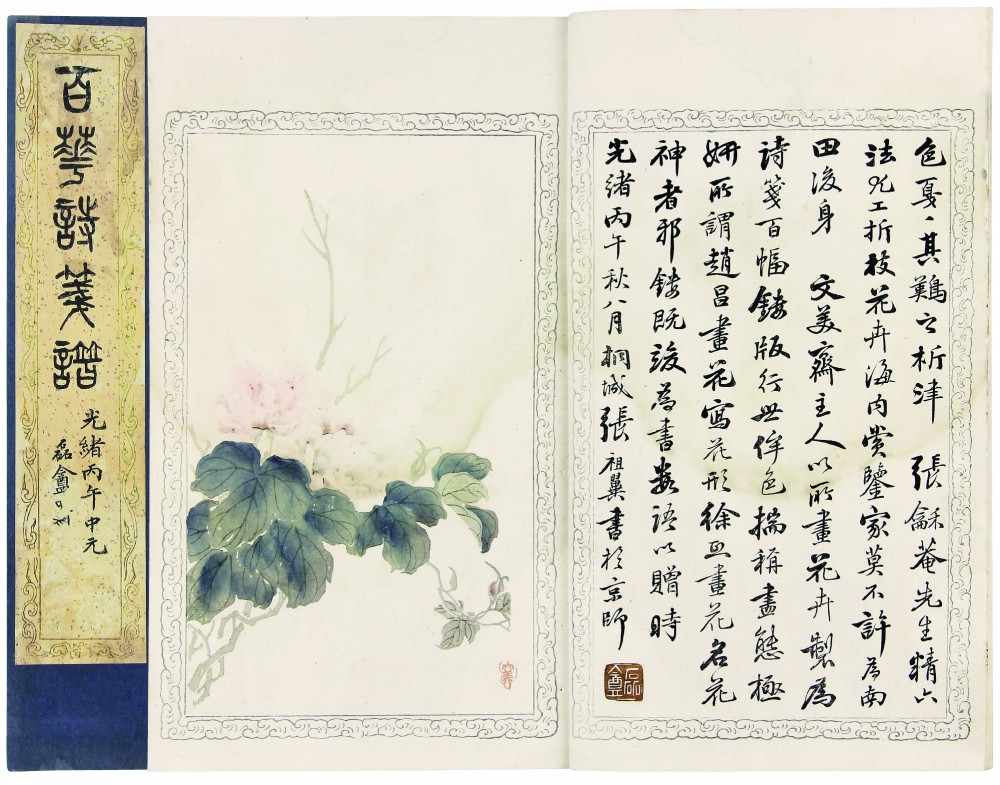 百華詩箋譜
光緒丙午中元
磊盦
色戛〻其難之析津 張龢菴先生精六
法尤工折枝花卉海內賞鑒家莫不許為南
田後身 文美齋主人以所畫花卉製為
詩箋百幅鏤版行世侔色揣稱盡態極
妍所謂趙昌畫花寫花形徐熙畫花名花
神者邪鏤既竣為書數語以贈時
光緒丙午秋八月桐城張祖翼書於京師
磊盦